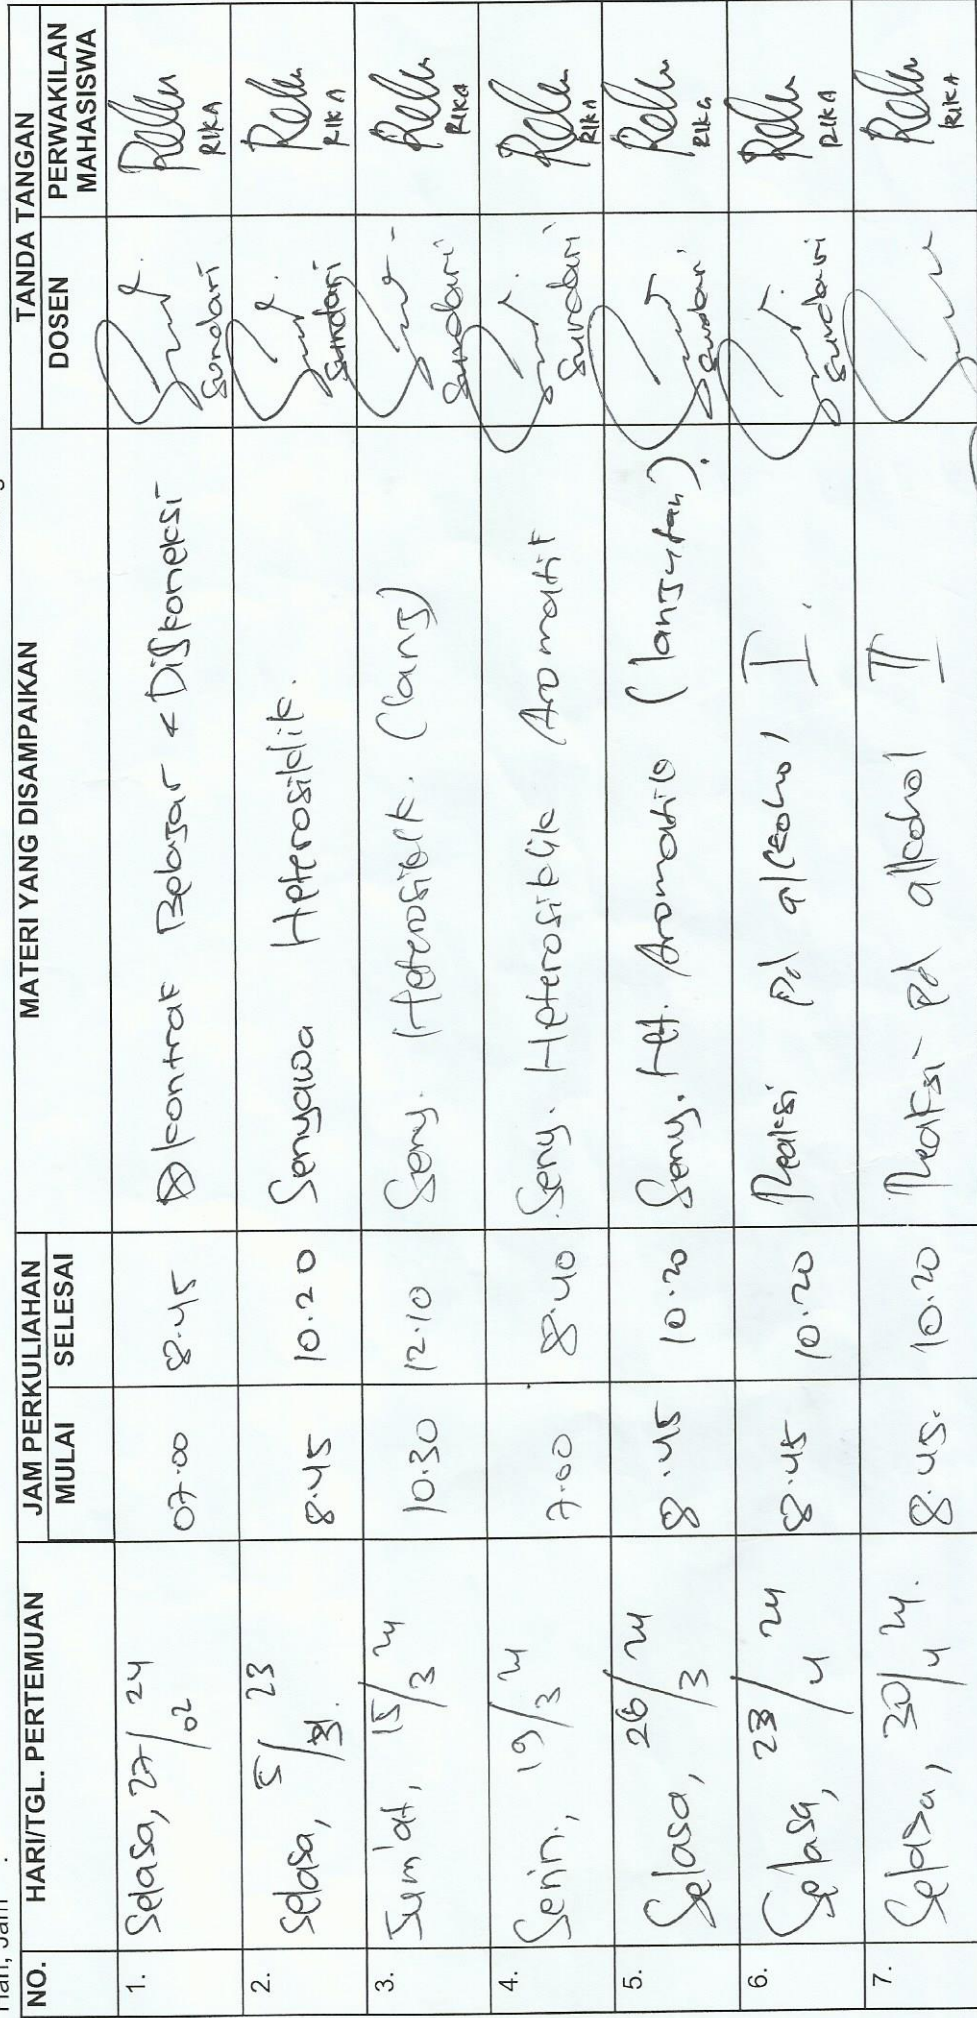 NO. HARI/TGL. PERTEMUAN JAM PERKULIAHAN MATERI YANG DISAMPAIKAN TANDA TANGAN
MULAI SELESAI DOSEN PERWAKILAN MAHASISWA
1. Selasa, 27/02 24 07.00 8.45 kontrak Belajar & Diskoneksi Sundari RIKA
2. Selasa, 5/3 23 8.45 10.20 Senyawa Heterosiklik. Sundari RIKA
3. Jum'at, 15/3 24 10.30 12.10 Seny. Heterosiklk. (lanj) Sundari RIKA
4. Senin, 19/3 24 7.00 8.40 Seny. Heterosiklik Aromatik Sundari RIKA
5. Selasa, 26/3 24 8.45 10.20 Seny. Het. Aromatik (lanjutan). Sundari RIKA
6. Selasa, 23/4 24 8.45 10.20 Reaksi pd alkohol I. Sundari RIKA
7. Selasa, 30/4 24. 8.45. 10.20 Reaksi pd alkohol II RIKA